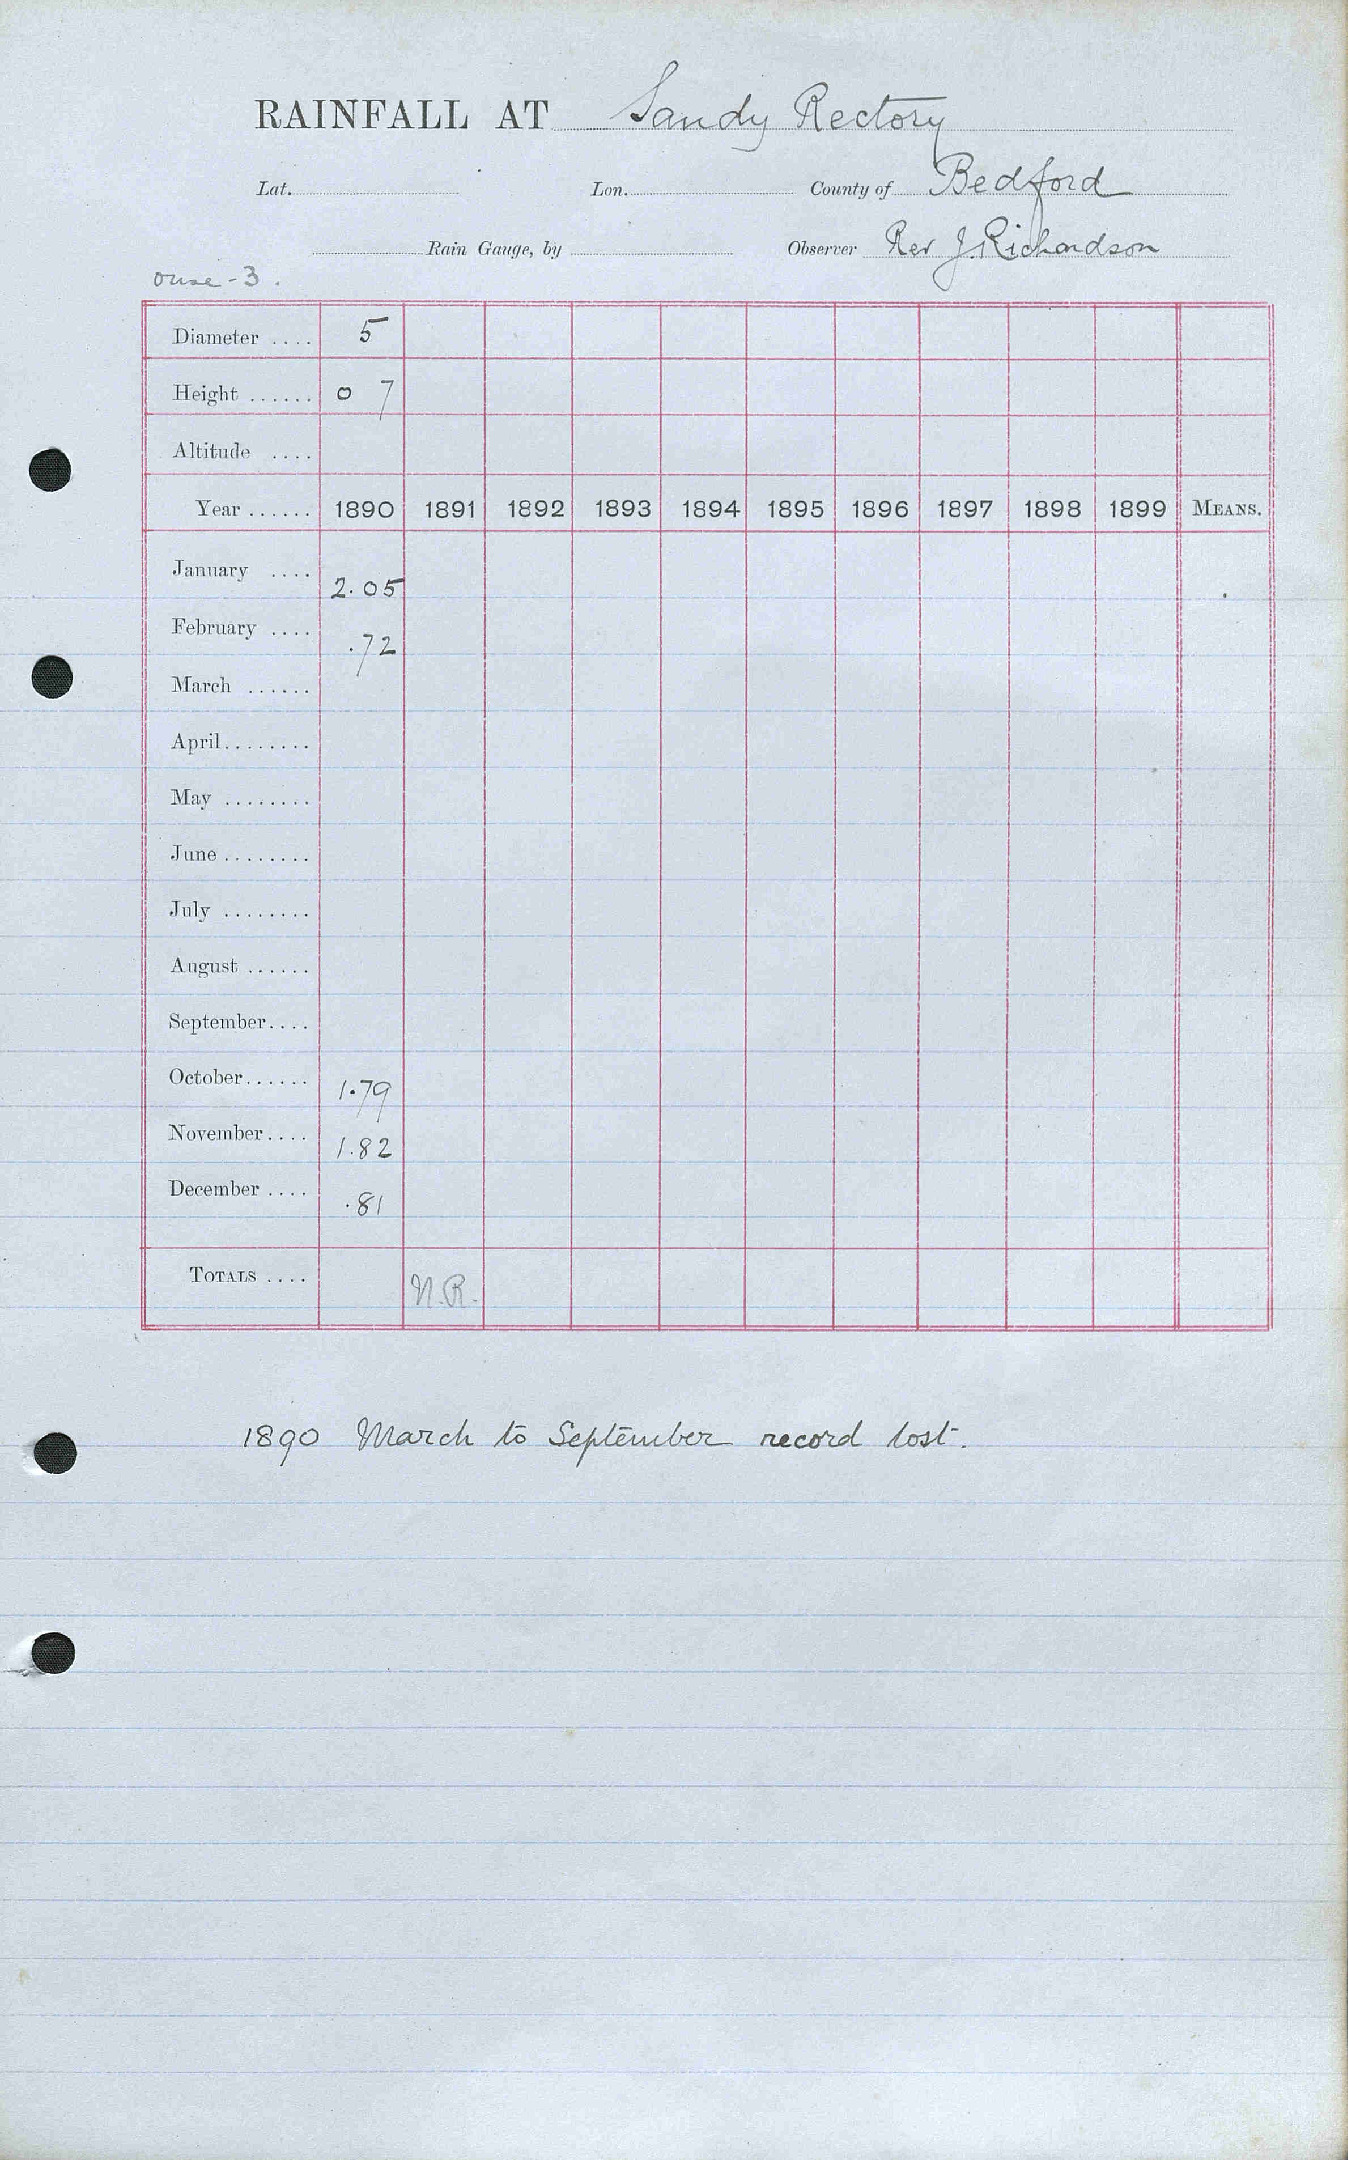 RAINFALL AT Sandy Rectory
Lat. Lon. County of Bedford
Rain Gauge, by Observer Rev J. Richardson
Ouse - 3.
Diameter .... 5
Height ...... 0 7
Altitude ....
Year ...... 1890 1891 1892 1893 1894 1895 1896 1897 1898 1899 MEANS.
January .... 2.05
February .... .72
March ......
April ........
May ........
June ........
July ........
August ......
September....
October...... 1.79
November.... 1.82
December .... .81
TOTALS .... N.R.
1890 March to September record lost.